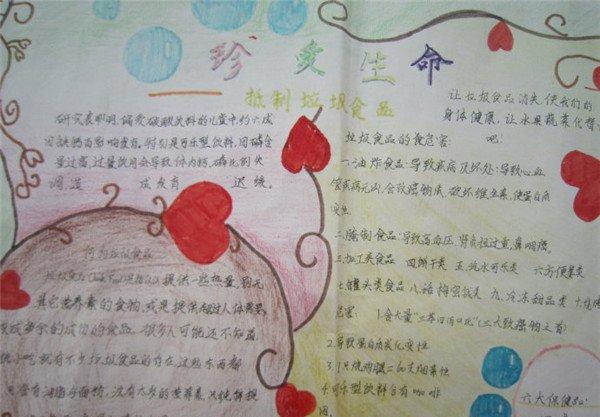 珍爱生命
抵制垃圾食品
研究表明，偏爱碳酸饮料的儿童中约六成
因缺钙而影响发育。特别是可乐型饮料，因磷含
量过高，过量饮用会导致体内钙、磷比例失
调，造 成发育 迟缓。
何为垃圾食品
提供一些热量，别无
其它营养素的食物，或是提供超过人体需要，
变成多余的成份的食品。很多人可能还不知道，
吃，就有不少垃圾食品的存在，这些东西都
只含有油脂与面粉，没有太多的营养素，只纯粹提
让垃圾食品消失，使我们的
身体健康，让水果蔬菜化替
吧！
垃圾食品的食危害：
一、油炸食品：导致疾病及坏处：导致心血
管疾病元凶，含致癌物质，破坏维生素，使蛋白质
变性
二、腌制食品：导致高血压，肾负担过重，鼻咽癌。
三、加工类食品 四、饼干类 五、汽水可乐类 六、方便类
七、罐头类食品 八、话梅蜜饯类 九、冷冻甜品类 十、烧烤
危害： 1.含大量"三苯四丙吡"（三大致癌物之首）
2.导致蛋白质炭化变性
3.1只烧鸡腿＝60支烟毒性
4.可乐型饮料含有咖啡
因。
六大保健品：